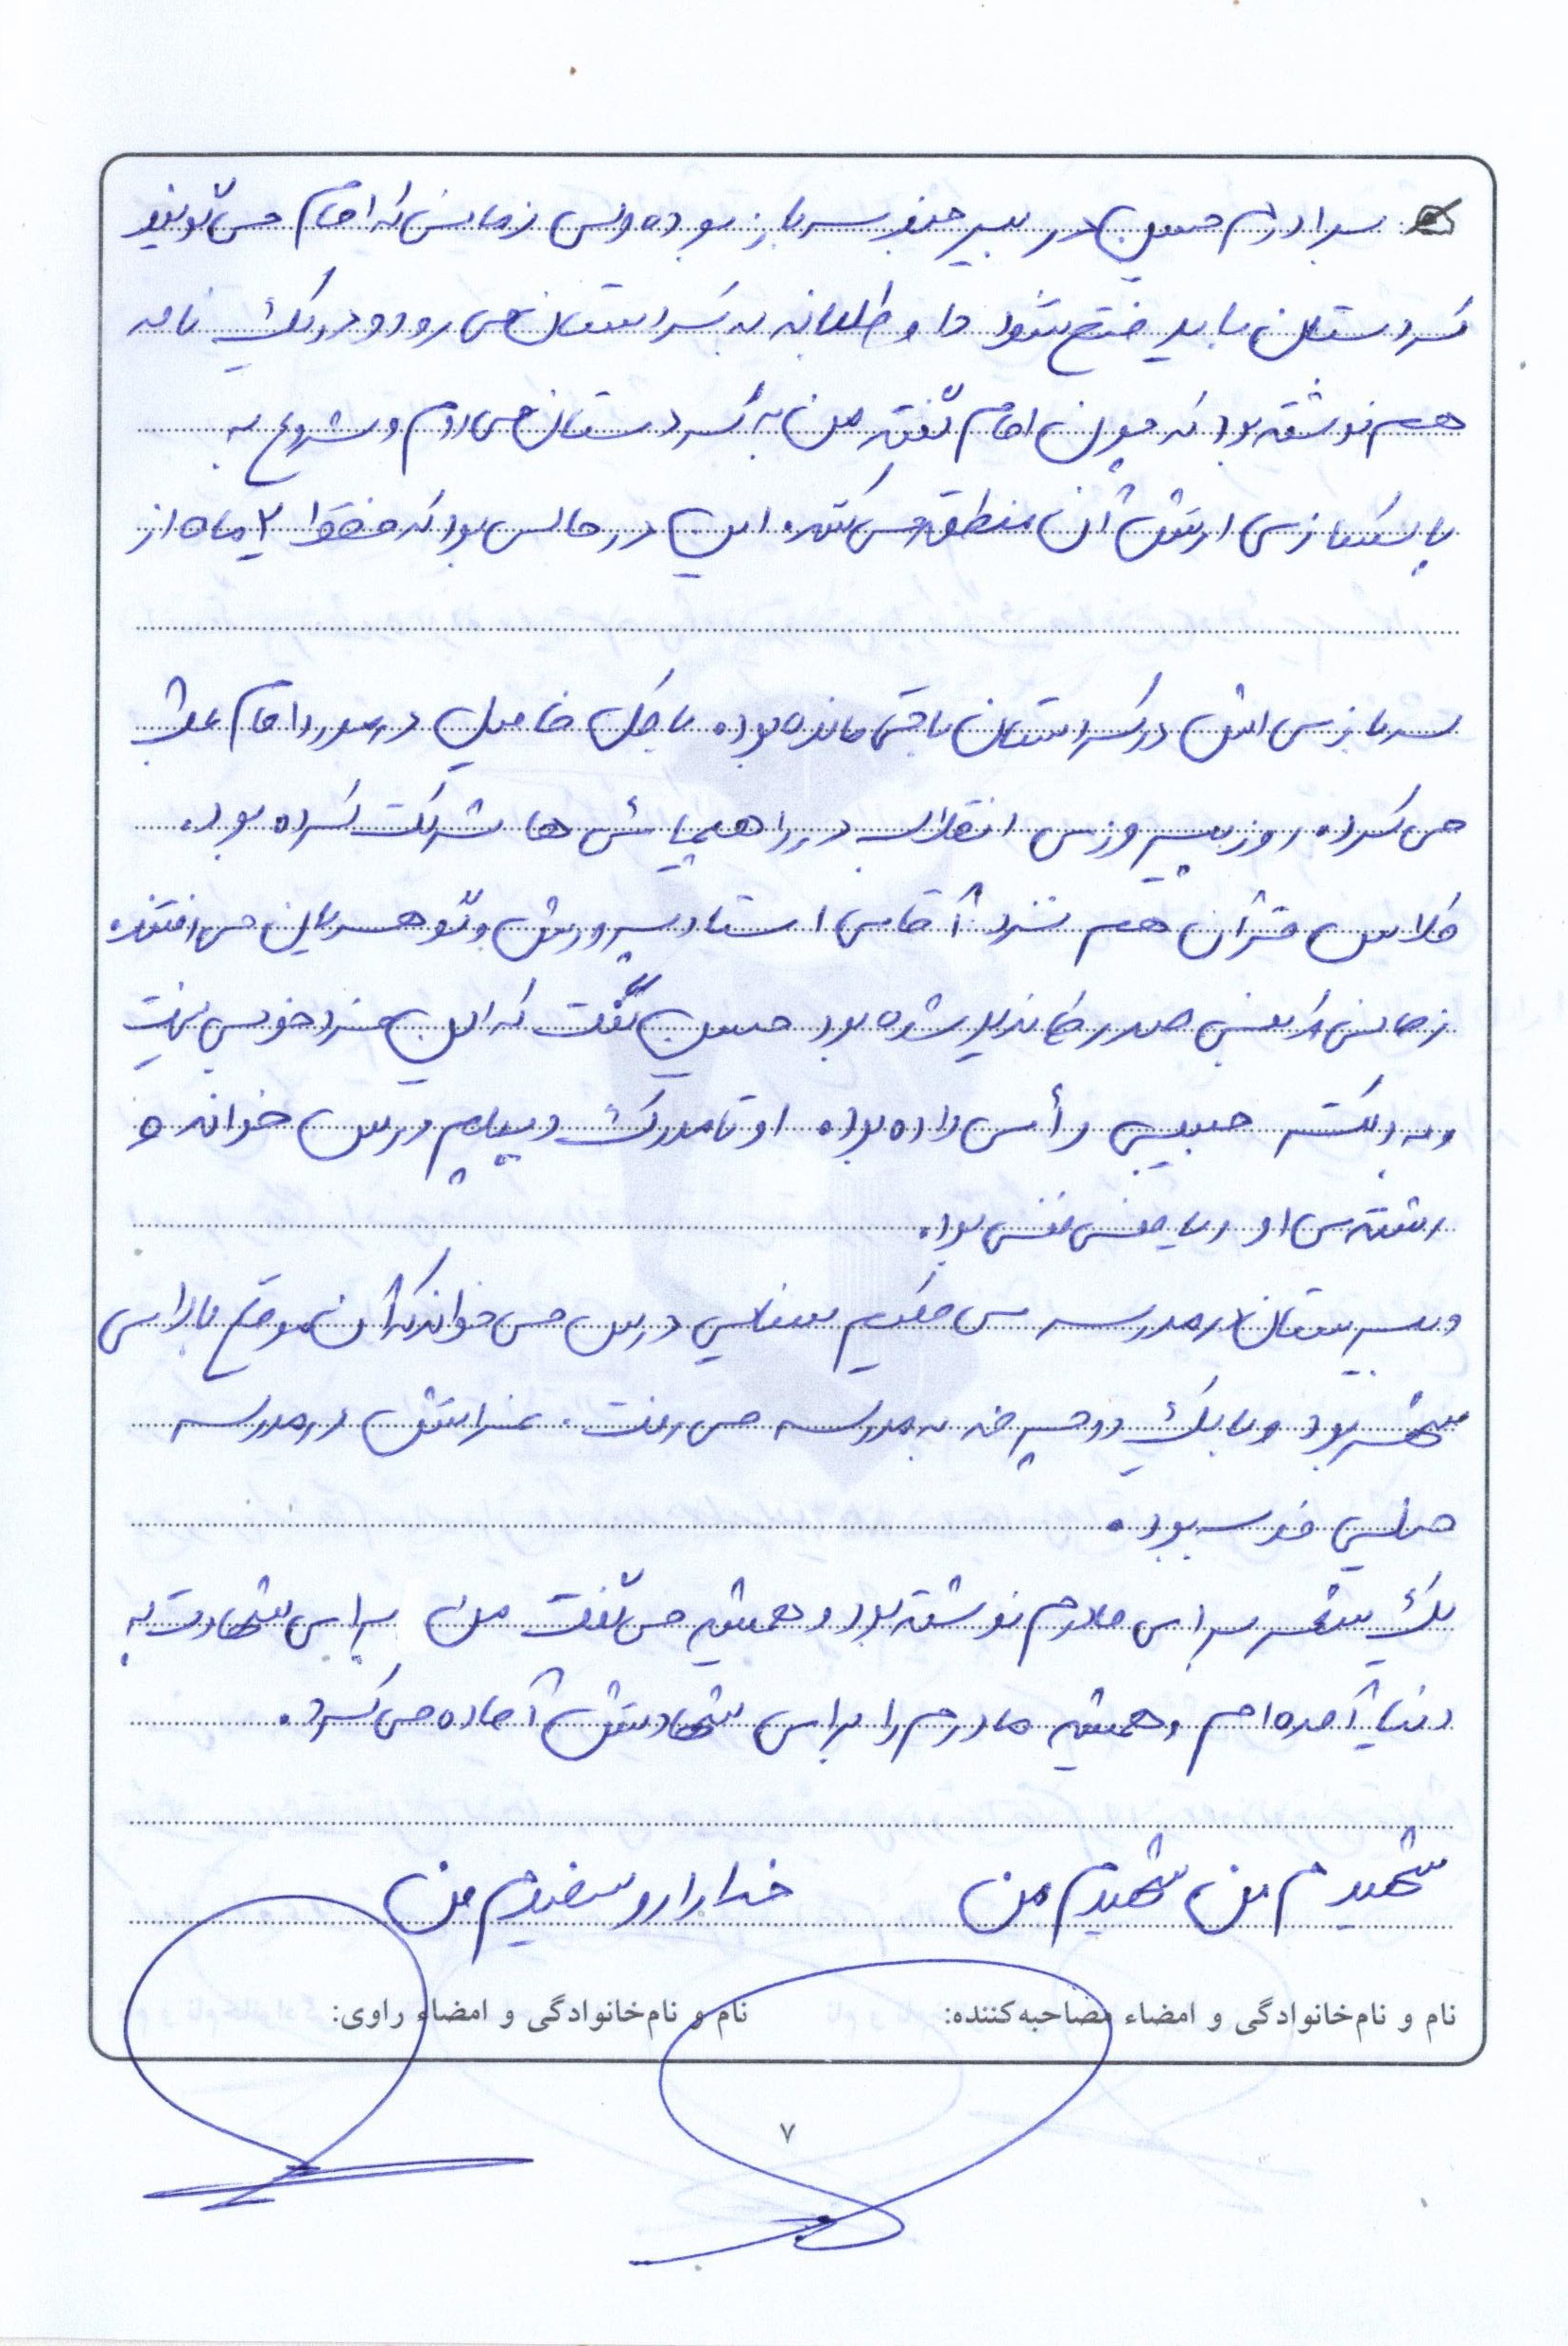 برادرم حسین در بیرجند سرباز بوده ولی زمانی که امام می گویند
کردستان باید فتح شود داوطلبانه به کردستان می رود و در یک نامه
هم نوشته بود که چون امام گفته من به کردستان می روم و شروع به
پاکسازی ارتش آن منطقه می کند. این در حالی بود که فقط ۲ ماه از
سربازی اش در کردستان باقی مانده بود. با کل فامیل در مورد امام بحث
می کرد. روز پیروزی انقلاب در راهپیمائی ها شرکت کرده بود.
کلاس قرآن هم نزد آقای استاد پرورش و گوهریان می رفتند.
زمانی که بنی صدر کاندید شده بود حسین گفت که این فرد خوبی نیست
و به دکتر حبیبی رأی داده بود. او تا مدرک دیپلم درس خوانده و
رشته ی او ریاضی فیزیک بود.
دبیرستان در مدرسه ی حکیم سنائی درس می خواند که آن موقع ماورای
شهر بود و با یک دوچرخه به مدرسه می رفت. نمراتش در مدرسه
خیلی خوب بود.
یک شعر برای مادرم نوشته بود و همیشه می گفت من برای شهادت به
دنیا آمده ام و همیشه مادرم را برای شهادتش آماده می کرد.
شهیدم من شهیدم من خدا را رو سفیدم من
نام و نام‌خانوادگی و امضاء مصاحبه‌کننده: نام و نام‌خانوادگی و امضاء راوی:
۷